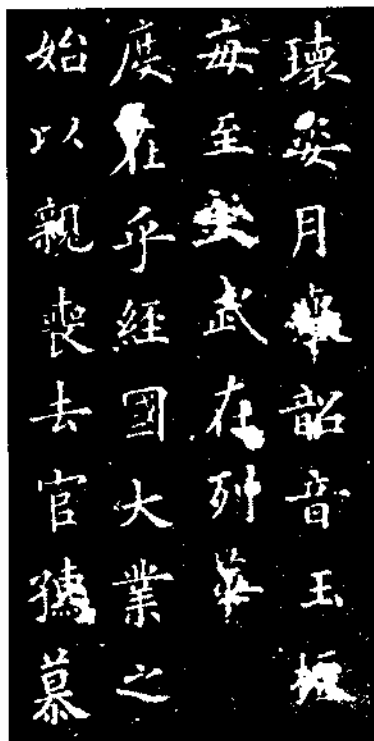 瓌姿月韶音玉振
每至武在列
度在乎經國大業之
始以親喪去官慕